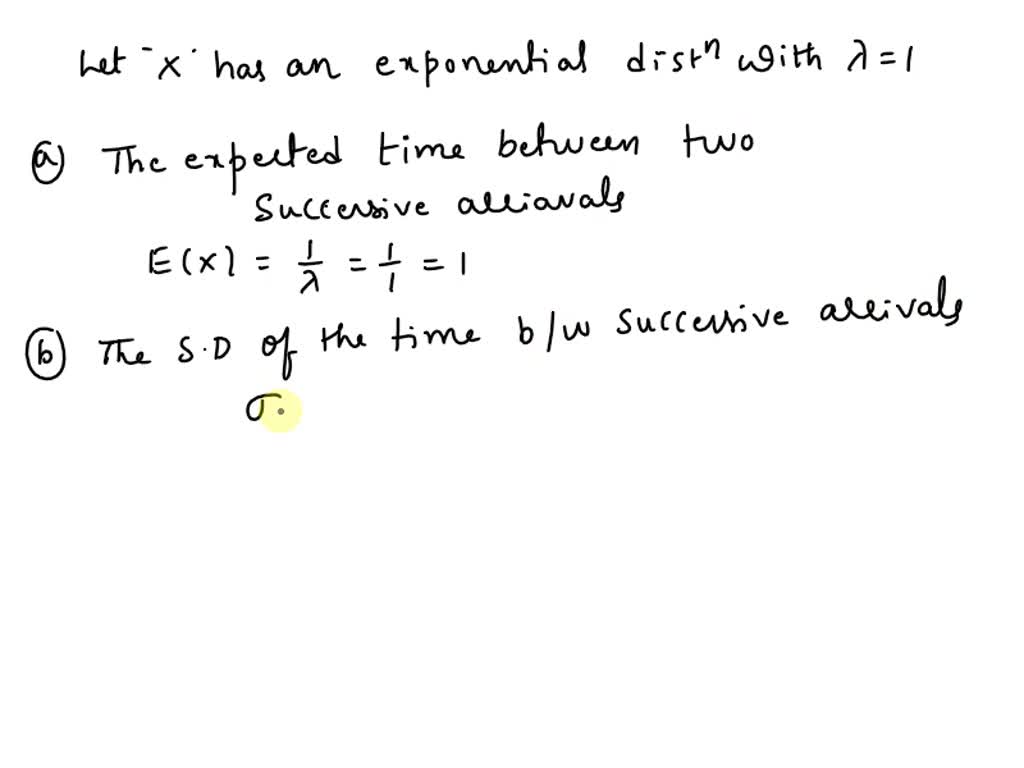 Let "X" has an exponential distⁿ with λ = 1
(a) The expected time between two
Successive alliavals
E(X) = 1/λ = 1/1 = 1
(b) The S.D of the time b/w Successive arrivals
σ